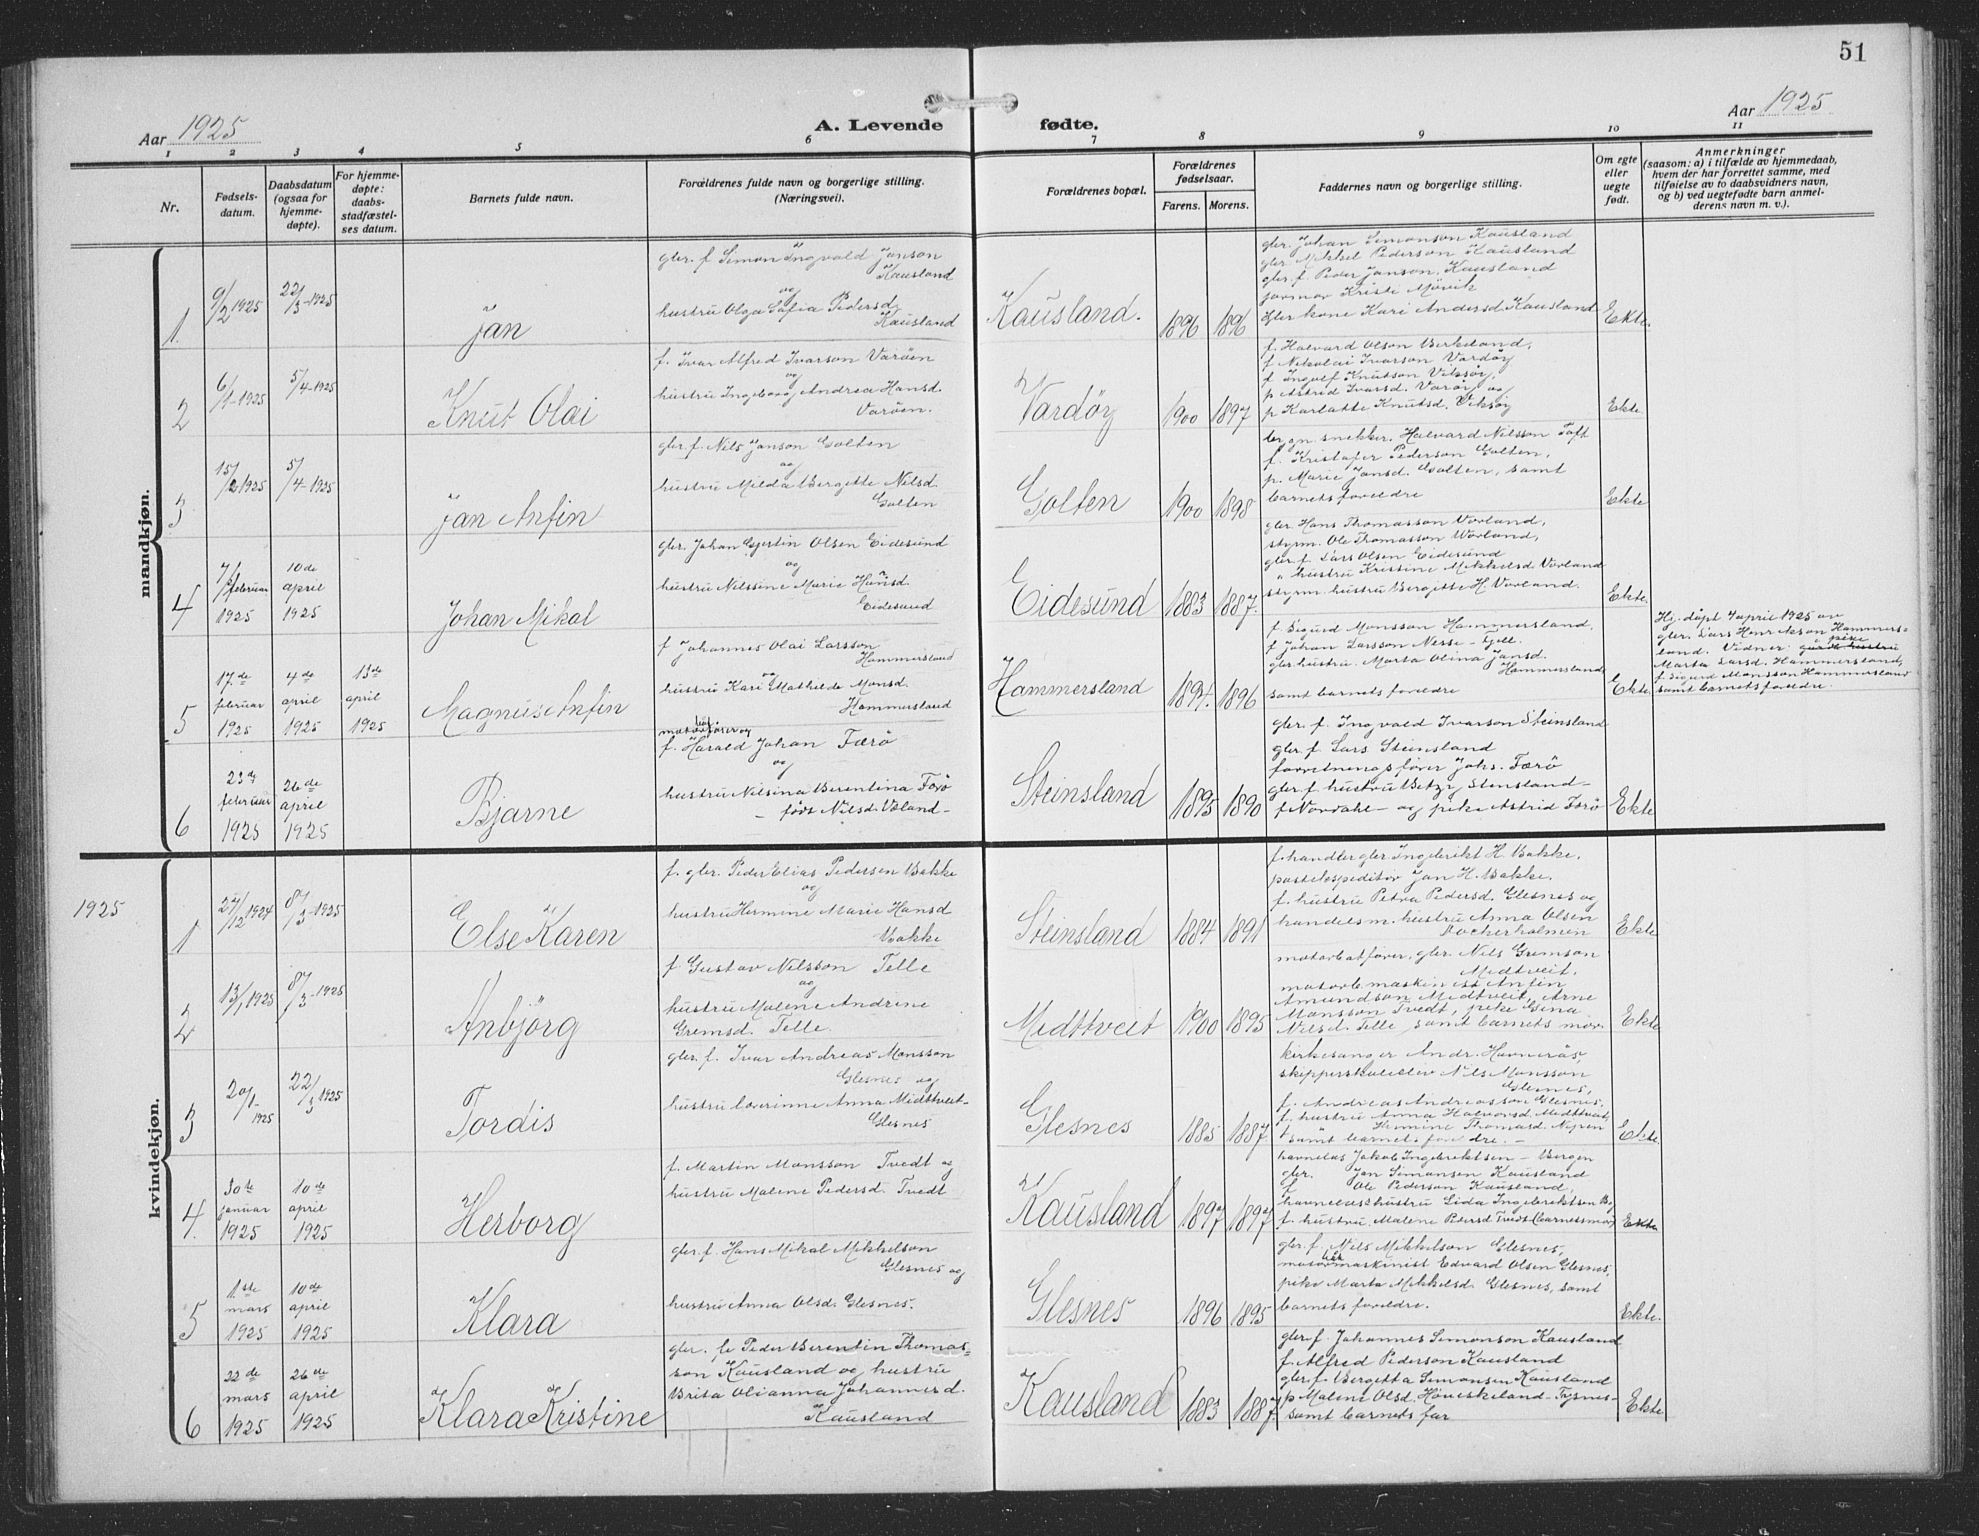 51
Aar 1925
A. Levende fødte.
Aar 1925
1 2 3 4 5 6 7 8 9 10 11
Nr.
Fødsels-
datum.
Daabsdatum
(ogsaa for
hjemme-
døpte).
For hjemme-
døpte:
daabs-
stadfæstel-
ses datum.
Barnets fulde navn.
Forældrenes fulde navn og borgerlige stilling.
(Næringsvei).
Forældrenes bopæl.
Forældrenes
fødselsaar.
Farens. Morens.
Faddernes navn og borgerlige stilling.
Om egte
eller
uegte
født.
Anmerkninger
(saasom: a) i tilfælde av hjemmedaab,
hvem der har forrettet samme, med
tilføielse av to daabsvidners navn,
og b) ved uegtefødte barn anmel-
derens navn m. v.).
mandkjøn.
1.
9/2 1925
22/3-1925
Jan
gbr. f Simon Ingvald Janson
Kausland
og
hustru Olga Sofia Pedersd.
Kausland
Kausland.
1896
1896
gbr. Johan Simonson Kausland
gbr. Mikkel Pederson Kausland
gbr. f. Peder Janson, Kausland
jormor Kristi Movik
Gbr kone Kari Andersd Kausland
Ekte.
2
6/1-1925
5/4-1925
Knut Olai
f. Ivar Alfred Ivarson Varöen
og
hustru Ingeborg Andrea Hansd.
Varöen.
Vardöy
1900
1897
f. Halvard Olson Birkeland,
f Nikolai Ivarson Vardöy
f Ingolf Knutson Viksöy,
p Astrid Ivarsd. Varöy og
p Karlotte Knutsd. Viksöy
Ekte.
3
15/2 1925
5/4-1925
Jan Anfin
gbr. f. Nils Janson Golten
og
hustru Milda Bergitte Nilsd.
Golten
Golten
1900
1898
snekker. Halvard Nilsson Toft
f. Kristofer Pederson Golten,
p. Marie Jansd. Golten, samt
barnets foreldre
Ekte
4
7/ februar
1925
10de
april
1925
Johan Mikal
gbr. Johan Gjertin Olsen Eidesund
og
hustru Nilssine Marie Hansd.
Eidesund
Eidesund
1883
1887.
gbr. Hans Thomasson Vorland,
styrm. Ole Thomasson Vorland,
gbr. f. Lars Olsen Eidesund
" hustru Kristine Mikkelsd Vorland
styrm. hustru Bergitte H. Vorland.
Ekte.
5
17de
februar
1925
4de
april
1925
13de
april
1925
Magnus Anfin
f Johannes Olai Larsson
Hammersland
og
hustru Kari Mathilde Monsd.
Hammersland
Hammersland
1894.
1896
f Sigurd Monsson Hammersland,
f Johan Larsson Nesse - Fjell.
gbr. hustru. Marta Olina Jansd.
Hammersland
samt barnets foreldre
Ekte.
Hj. døpt 4 april 1925 av
gbr. Lars Henrikson Hammers-
land. Vidner: pike
Marta Larsd. Hammersland,
f. Sigurd Monsson Hammersland
samt barnets foreldre.
6
23de
februar
1925
26de
april
1925
Bjarne
motorbåtfører og
f. Harald Johan Færö
og
hustru Nilsina Berentina Förö
- født Nilsd. Våland -
Steinsland
1895
1890
gbr. f. Ingvald Ivarson Steinsland
gbr. f. Lars Steinsland
forretningsfører Johs. Færö
gbr. f hustru Betzy Steinsland-
f Nordahl - og pike Astrid Förö
Ekte
kvindekjøn.
1925
1
27/12 1924
8/3-1925
Else Karen
f. gbr. Peder Elias Pedersen Bakke
og
hustru Hermine Marie Hansd
Bakke
Steinsland
1884
1891
f. handler gbr. Ingebrikt H. Bakke,
postekspeditör Jan H. Bakke.
f. hustru Petra Pedersd. Glesnes og
handelsm. hustru Anna Olsen
Lockerholmen
Ekte
2
13/1 1925
8/3-1925
Anbjörg
f Gustav Nilsson Telle
og
hustru Malene Andrine
Gremsd. Telle.
Midttveit
1900
1895
motorbåtfører, gbr. Nils Gremson
Midtveit,
motorb. maskinist Anfin
Amundson Midtveit, Arne
Monsson Tvedt, pike Gina
Nilsd. Telle, samt barnets mor.
Ekte
3
20/1-1925
22/3 1925
Tordis
gbr. f. Ivar Andreas Monsson
Glesnes og
hustru Severinne Anna Midttveit-
Glesnes
Glesnes
1885
1887
kirkesanger Andr. Havnerås,
skipperskoleelev Nils Monsson
Glesnes,
f. Andreas Andreasson Glesnes,
f. hustru Anna Halvorsd. Midttveit,
Hermine Thomasd. Nipen
samt barnets foreldre. -
Ekte.
4.
30te
januar
1925
10de
april
1925
Herborg
f. Martin Monsson Tvedt og
hustru Malene Pedersd. Tvedt
Kausland
1897
1897
havnelos Jakob Ingebriktsen - Bergen
gbr. Jan Simonsen Kausland
f Ole Pederson Kausland,
havneloshustru Lida Ingebriktsen Bg
f. hustru. Malene Pedersd Tvedt (barnets mor)
Ekte
5
1ste
mars
1925
10de
april
1925
Klara
gbr. f. Hans Mikal Mikkelson
Glesnes og
hustru Anna Olsd. Glesnes.
Glesnes
1896
1895
gbr. f. Nils Mikkelson Glesnes,
motorbåtmaskinist Edvard Olsen Glesnes,
pike Marta Mikkelsd. Glesnes, samt
barnets foreldre.
Ekte.
6
22de
mars
1925
26de
april
1925
Klara Kristine
gbr. f. Peder Berentin Thomas-
son Kausland og hustru
Brita Olianna Johannesd.
Kausland
Kausland
1883
1887.
gbr f. Johannes Simonson Kausland
f. Alfred Pederson Kausland
gbr f. Bergitta Simonsen Kausland
p Malene Olsd. Höviskeland - Tysnes-
samt barnets far
Ekte